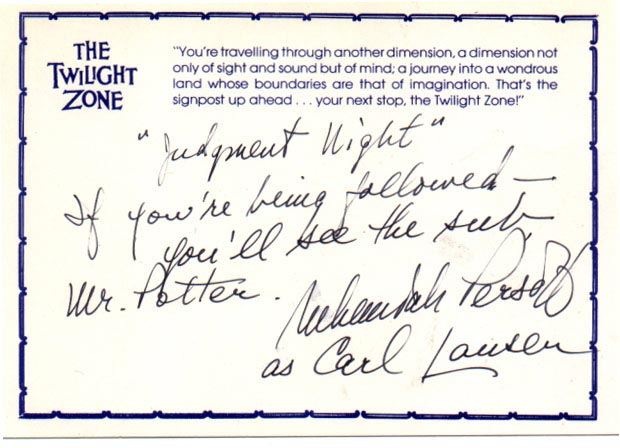 THE
TWILIGHT
ZONE
"You're travelling through another dimension, a dimension not
only of sight and sound but of mind; a journey into a wondrous
land whose boundaries are that of imagination. That's the
signpost up ahead . . . your next stop, the Twilight Zone!"
"Judgment Night"
If you're being followed—
you'll see the sub,
Mr. Potter.
Nehemiah Persoff
as Carl Lanser